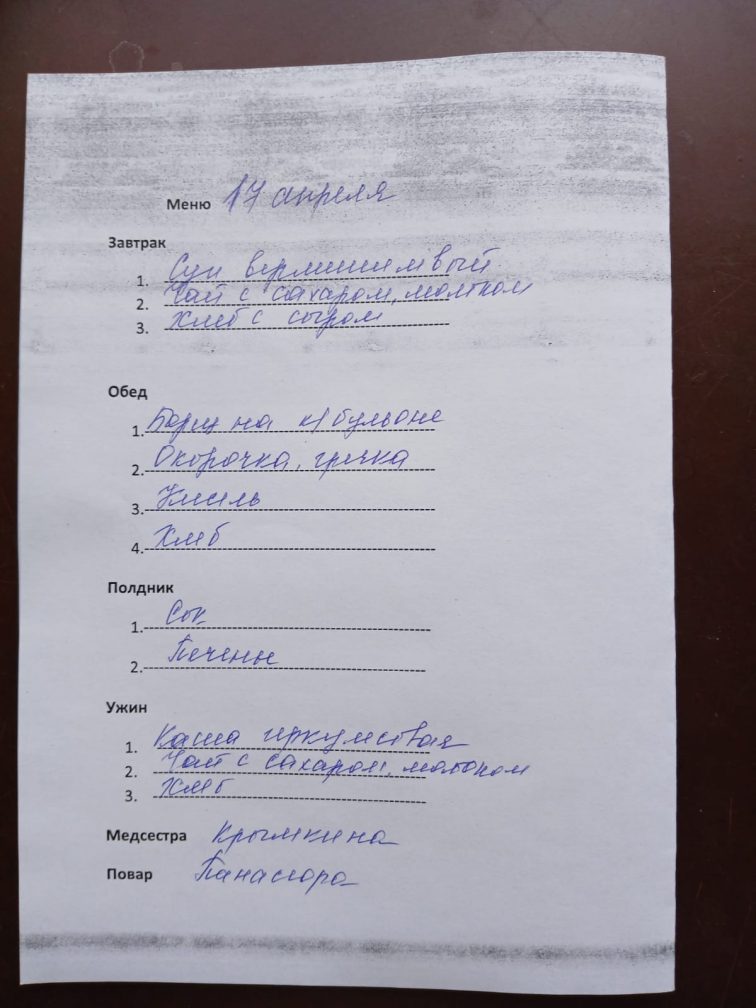 Меню 17 апреля
Завтрак
1. Суп вермишелевый
2. Чай с сахаром, молоком
3. Хлеб с сыром
Обед
1. Борщ на к/бульоне
2. Окорочка, гречка
3. Кисель
4. Хлеб
Полдник
1. Сок
2. Печенье
Ужин
1. Каша
2. Чай с сахаром, молоком
3. Хлеб
Медсестра Крымкина
Повар